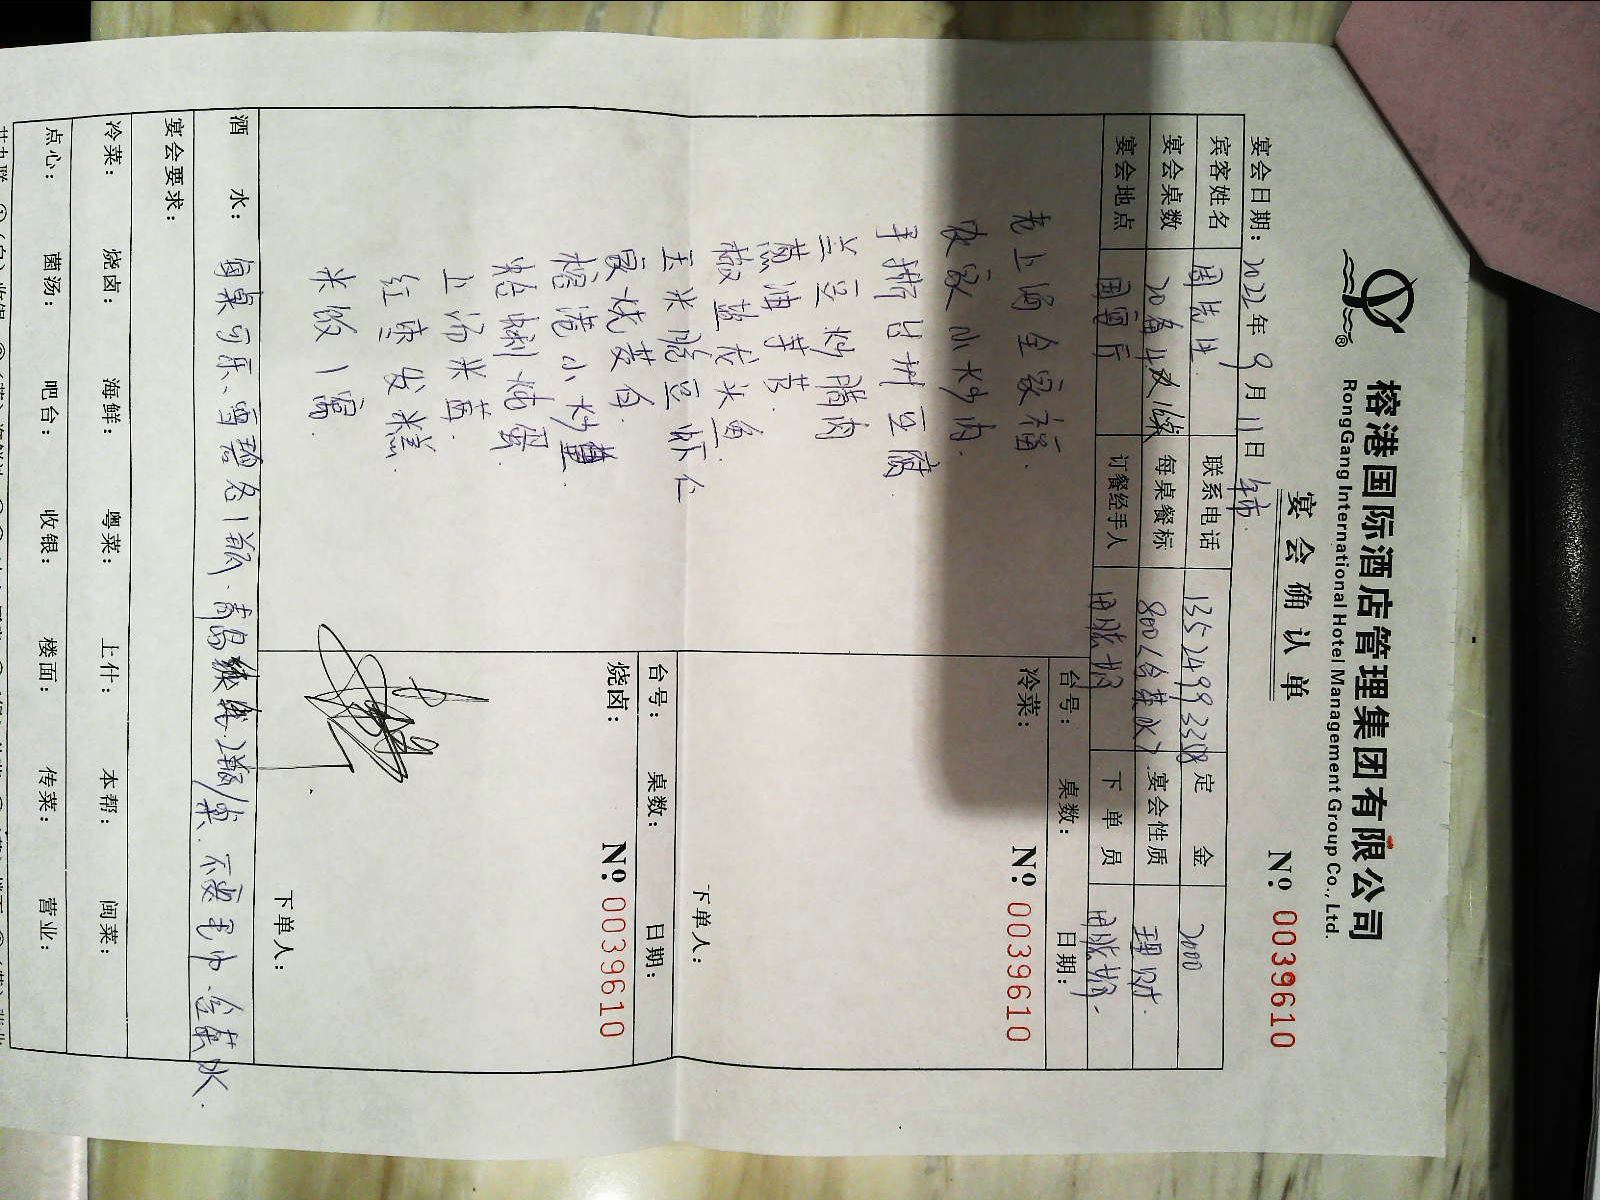 榕港国际酒店管理集团有限公司
RongGang International Hotel Management Group Co., Ltd.
宴会确认单
№ 0039610
宴会日期: 2022年9月11日
宾客姓名 联系电话 定金 2000
宴会桌数 每桌餐标 800 宴会性质
宴会地点 订餐经手人 下单员
老上海全家福
农家小炒肉
手撕包浆豆腐
兰豆炒腊肉
葱油芋艿
椒盐龙头鱼
玉米脆豆虾仁
油烧茭白
榕港小炒皇
蛤蜊炖蛋
上汤米苋
红枣发糕
米饭1窝
台号: 桌数: 日期:
冷菜:
№ 0039610
下单人:
台号: 桌数: 日期:
烧卤:
№ 0039610
下单人:
酒水: 每桌可乐、雪碧各1瓶. 青岛 2瓶/桌. 不要毛巾. 含茶水.
宴会要求:
冷菜: 烧卤: 海鲜: 粤菜: 上什: 本帮: 闽菜:
点心: 菌汤: 吧台: 收银: 楼面: 传菜: 营业: